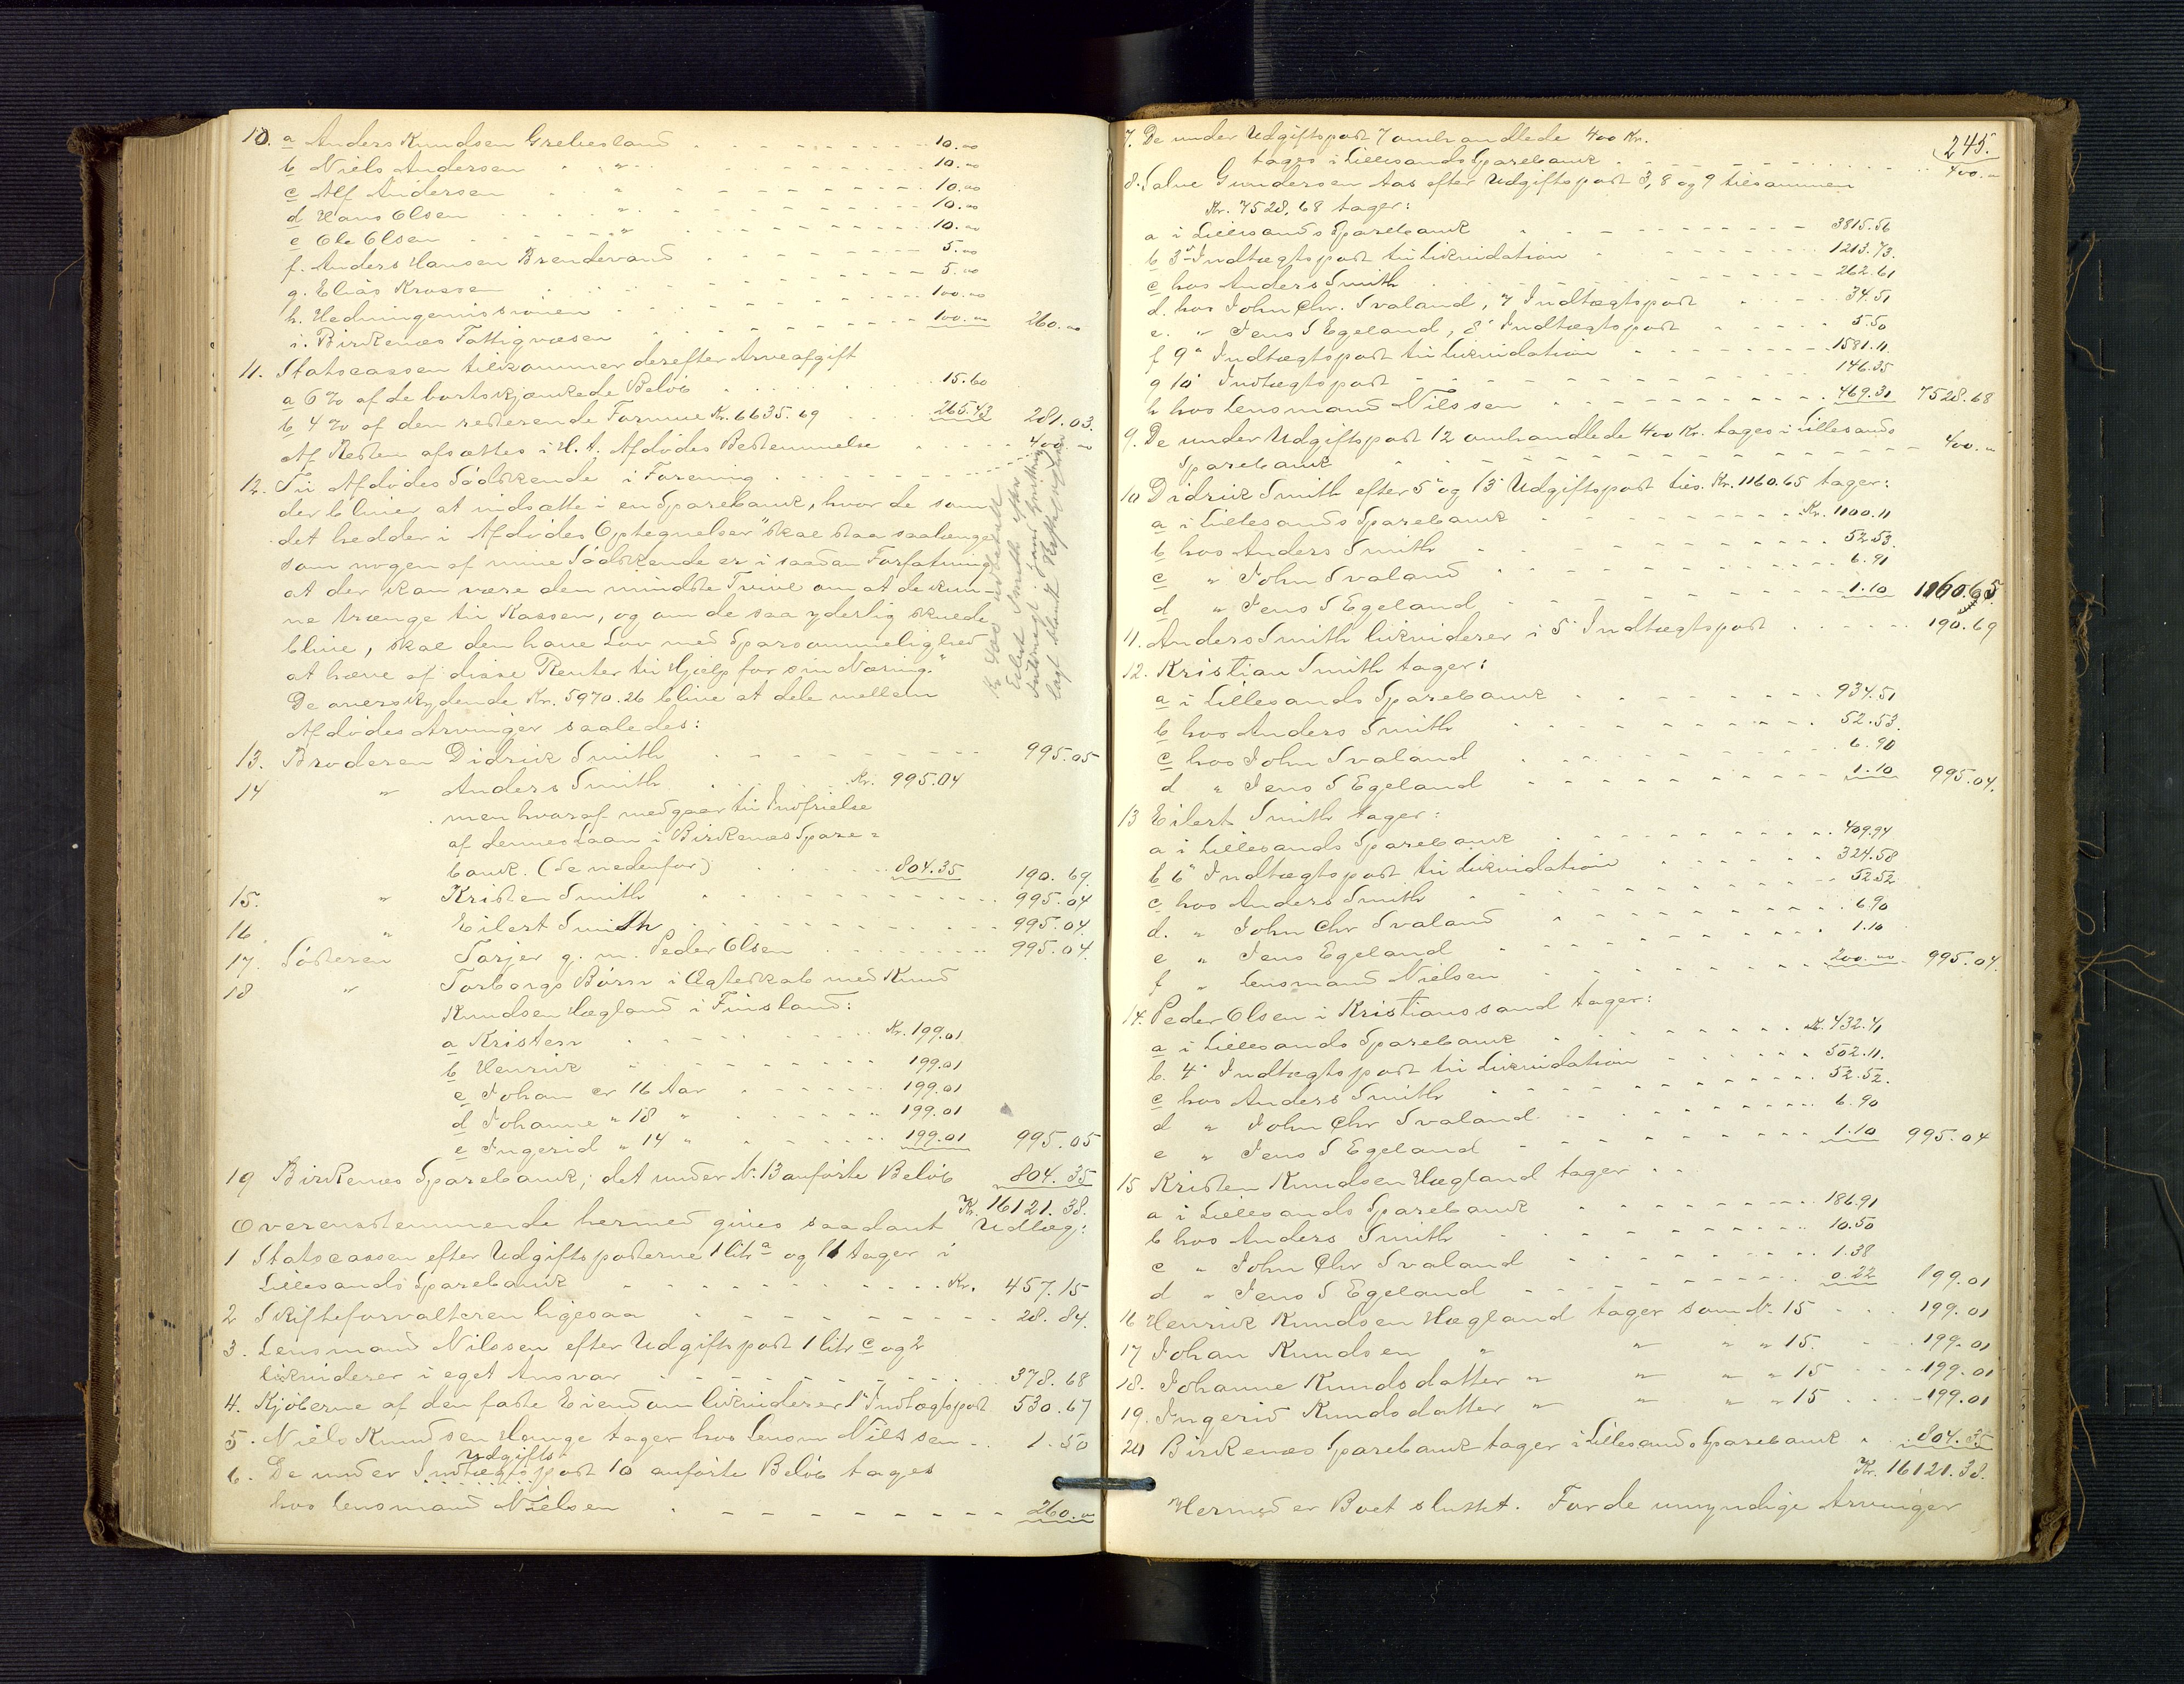 10. a Anders Knudsen Grebesland 10.00
b Niels Andersen " 10.00
c Alf Andersen " 10.00
d Hans Olsen " 10.00
e Ole Olsen " 10.00
f. Anders Hansen Brendevand 5.00
g. Elias Krossen 5.00
h. Hedningemissionen 100.00
i. Birkenæs Fattigvæsen 100.00 260.00
11. Statscassen tilkommer derefter Arveafgift
a 6 % af de bortskjænkede Beløb 15.60
b 4 % af den resterende Formue Kr. 6635.69 265.43 281.03.
Af Resten afsættes i H. t. Afdødes Bestemmelse
12. Til Afdødes Sødskende i Forening 400.00
der bliver at indsætte i en Sparebank, hvor de som
det hedder i Afdødes Optegnelser "skal staa saalænge
som nogen af mine Sødskende er i saadan Forfatning
at der kan være den mindste Tvivl om at de kun-
ne trænge til Kassen, og om de saa yderlig skulde
blive, skal den have Lov med Sparsommelighed
at hæve af disse Renter til Hjælp for sin Næring."
De overskydende Kr. 5970.26 blive at dele mellem
Afdødes Arvinger saaledes:
Kr. 400 udbetalt
Eilert Smith efter
lagt blandt
13. Broderen Didrik Smith 995.05
14 " Anders Smith Kr. 995.04
men hvoraf medgaar til Indfrielse
af dennes Laan i Birkenæs Spare=
bank. (Se nedenfor) 804.35 190.69
15. " Kristen Smith 995.04
16 " Eilert Smith 995.04.
17. Søsteren Tarjer g. m. Peder Olsen 995.04.
18 " Torborgs Børn i Ægteskab med Knud
Knudsen Hægland i Finsland:
a Kristen Kr. 199.01
b Henrik 199.01
c Johan er 16 Aar 199.01
d Johanne " 18 " 199.01
e Ingerid " 14 " 199.01 995.05
19 Birkenæs Sparebank; det under N. 13 anførte Beløb 804.35
Kr. 16121.38.
Overensstemmende hermed gives saadant Udlæg:
1 Statscassen efter Udgiftsposterne 1 litr a og 11 tager i
Lillesands Sparebank Kr. 457.15
2 Skifteforvalteren ligesaa 28.84.
3. Lensmand Nilssen efter Udgiftspost 1 litr c og 2
likviderer i eget Ansvar 378.68
4. Kjøberne af den faste Eiendom likviderer 1" Indtægtspost 530.67
5. Niels Knudsen Hauge tager hos Lensm Nielssen 1.50
Udgifts
6. De under Indtægtspost 10 anførte Beløb tages
hos Lensmand Nielsen 260.00
245.
7. De under Udgiftspost 7 omhandlede 400 Kr.
tages i Lillesands Sparebank 400.00
8. Salve Gundersen Aas efter Udgiftspost 3, 8 og 9 tilsammen
Kr. 7528.68 tager:
a i Lillesands Sparebank 3815.56
b 3" Indtægtspost til Likvidation 1213.73.
c hos Anders Smith 262.61
d. hos John Chr. Svaland, 7 Indtægtspost 34.51
e. " Jens S Egeland, 8" Indtægtspost 5.50
f 9" Indtægtspost til Likvidation 1581.11.
g 10" Indtægtspost 146.35
h hos Lensmand Nilssen 469.31 7528.68
9. De under Udgiftspost 12 omhandlede 400 Kr. tages i Lillesands
Sparebank 400.00
10 Didrik Smith efter 5" og 13" Udgiftspost tils. Kr. 1160.65 tager:
a i Lillesands Sparebank Kr. 1100.11
b hos Anders Smith 52.53.
c " John Svaland 6.91
d " Jens S Egeland 1.10 1160.65.
11. Anders Smith likviderer i 5" Indtægtspost 190.69
12. Kristian Smith tager:
a i Lillesands Sparebank 934.51
b hos Anders Smith 52.53.
c hos John Svaland 6.90
d " Jens S Egeland 1.10 995.04.
13 Eilert Smith tager:
a i Lillesands Sparebank 409.94
b 6" Indtægtspost til Likvidation 324.58
c hos Anders Smith 52.52
d. " John Chr Svaland 6.90
e " Jens Egeland 1.10
f " Lensmand Nielsen 200.00 995.04.
14. Peder Olsen i Kristianssand tager:
a i Lillesands Sparebank Kr. 432.41
b. 4" Indtægtspost til Likvidation 502.11.
c hos Anders Smith 52.52.
d " John Chr Svaland 6.90
e " Jens S Egeland 1.10 995.04
15 Kristen Knudsen Hægland tager
a i Lillesands Sparebank 186.91
b hos Anders Smith 10.50
c " John Chr Svaland 1.38
d " Jens S Egeland 0.22 199.01
16 Henrik Knudsen Hægland tager som N. 15 199.01
17 Johan Knudsen " " " " 15. 199.01
18. Johanne Knudsdatter " " " " 15 199.01
19. Ingerid Knudsdatter " " " " 15 199.01
20 Birkenæs Sparebank tager i Lillesands Sparebank 804.35
Kr. 16121.38.
Hermed er Boet sluttet. For de umyndige Arvinger